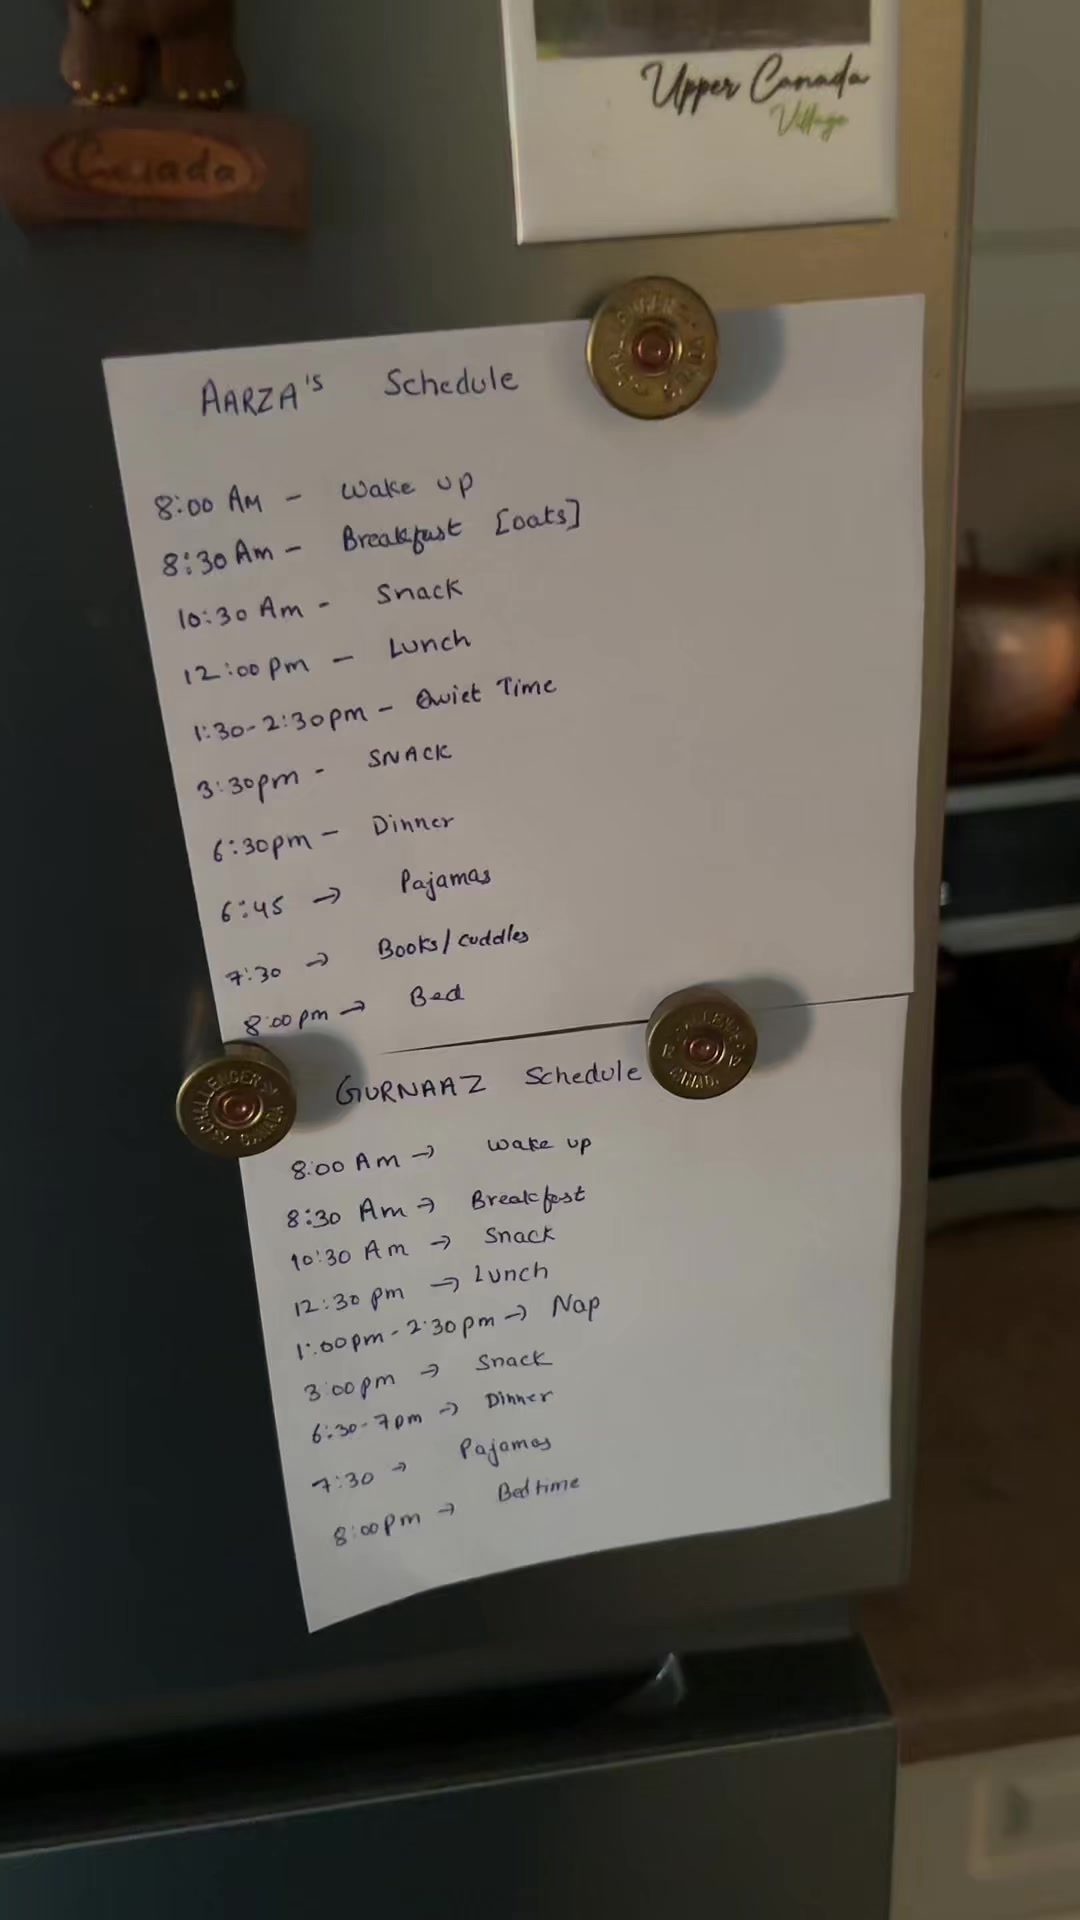 Canada
Upper Canada
Village
AARZA'S Schedule
8:00 AM - Wake up
8:30 Am - Breakfast [oats]
10:30 Am - Snack
12:00pm - Lunch
1:30-2:30pm - Quiet Time
3:30pm - SNACK
6:30pm - Dinner
6:45 → Pajamas
7:30 → Books/cuddles
8:00pm → Bed
CHALLENGER CANADA
CHALLENGER 12 12 CANADA
GURNAAZ Schedule
8:00 Am → Wake up
8:30 Am → Breakfast
10:30 Am → Snack
12:30 pm → Lunch
1:00pm-2:30pm → Nap
3:00pm → Snack
6:30-7pm → Dinner
7:30 → Pajamas
8:00pm → Bedtime